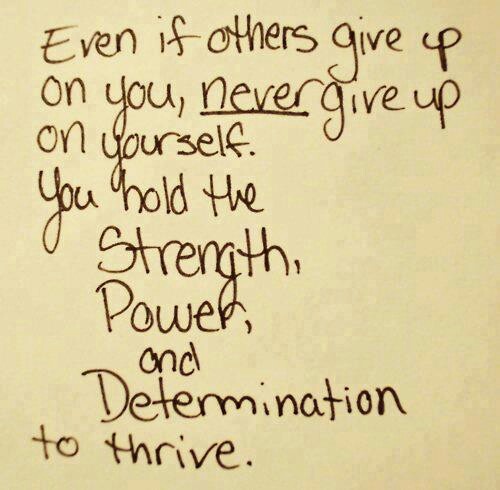 Even if others give up
on you, never give up
on yourself.
You hold the
Strength,
Power,
and
Determination
to thrive.